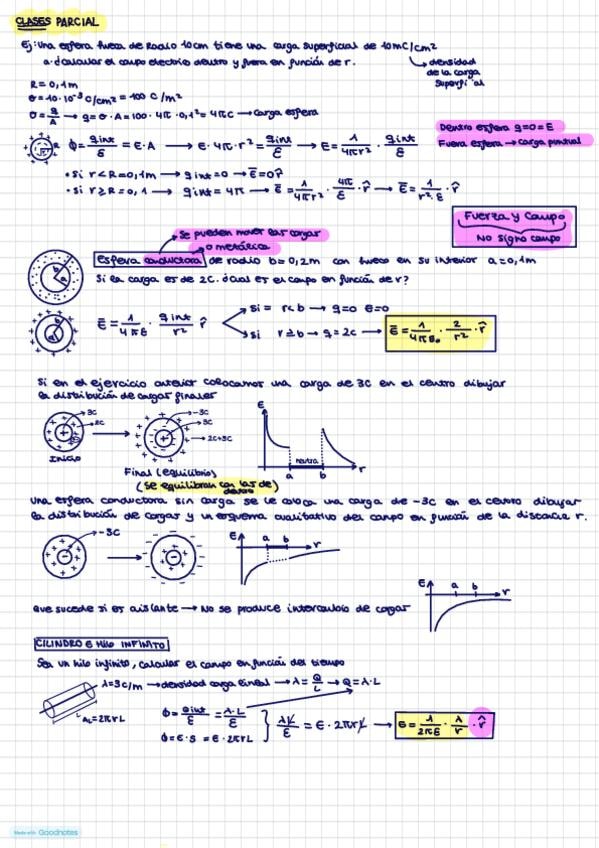 CLASES PARCIAL
Ej: Una esfera hueca de Radio 10cm tiene una carga superficial de 10mC/cm²
a. Calcular el campo electrico dentro y fuera en función de r.
densidad
de la carga
superficial
R = 0,1m
σ = 10·10⁻³ C/cm² = 100 C/m²
σ = q/A → q = σ·A = 100·4π·0,1² = 4πC → carga esfera
Dentro esfera q=0=E
Fuera esfera → carga puntual
R
ϕ = qint/ε = E·A → E·4π·r² = qint/ε → E = 1/4πr² · qint/ε
• Si r < R = 0,1m → qint = 0 → E̅ = 0r̂
• Si r ≥ R = 0,1 → qint = 4π → E̅ = 1/4πr² · 4π/ε · r̂ → E̅ = 1/r²·ε · r̂
Fuerza y Campo
No signo campo
Se pueden mover las cargas
o metálica
Esfera conductora de radio b = 0,2m con hueco en su interior a = 0,1m
Si la carga es de 2C. ¿Cual es el campo en función de r?
E̅ = 1/4πε · qint/r² r̂
si = r<b → q=0 E=0
si r≥b → q = 2C → E̅ = 1/4πε₀ · 2/r² · r̂
Si en el ejercicio anterior colocamos una carga de 3C en el centro dibujar
la distribución de cargas finales
3C
2C
Inicio
-3C
3C
2C+3C
Final (equilibrio)
(se equilibran con las de dentro)
E
neutra
a b r
Una esfera conductora sin carga se le coloca una carga de -3C en el centro dibujar
la distribución de cargas y un esquema cualitativo del campo en función de la distancia r.
-3C
E
a b r
E
a b r
Que sucede si es aislante → No se produce intercambio de cargas
CILINDRO E HILO INFINITO
Sea un hilo infinito, calcular el campo en función del tiempo
λ = 3C/m → densidad carga lineal → λ = Q/L → Q = λ·L
L
AL = 2πrL
ϕ = Qint/ε = λ·L/ε
ϕ = E·S = E·2πrL
λL/ε = E·2πrL → E = λ/2πε · λ/r · r̂
Made with Goodnotes